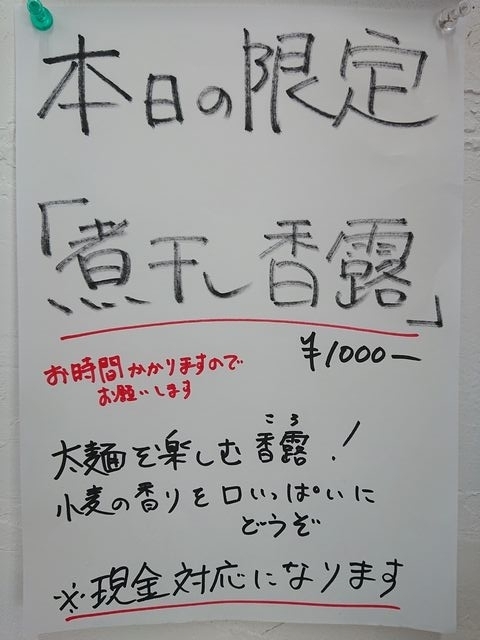 本日の限定
「煮干し香露」
¥1000ー
お時間かかりますので
お願いします
ころ
太麺を楽しむ香露!
小麦の香りを口いっぱいに
どうぞ
※現金対応になります